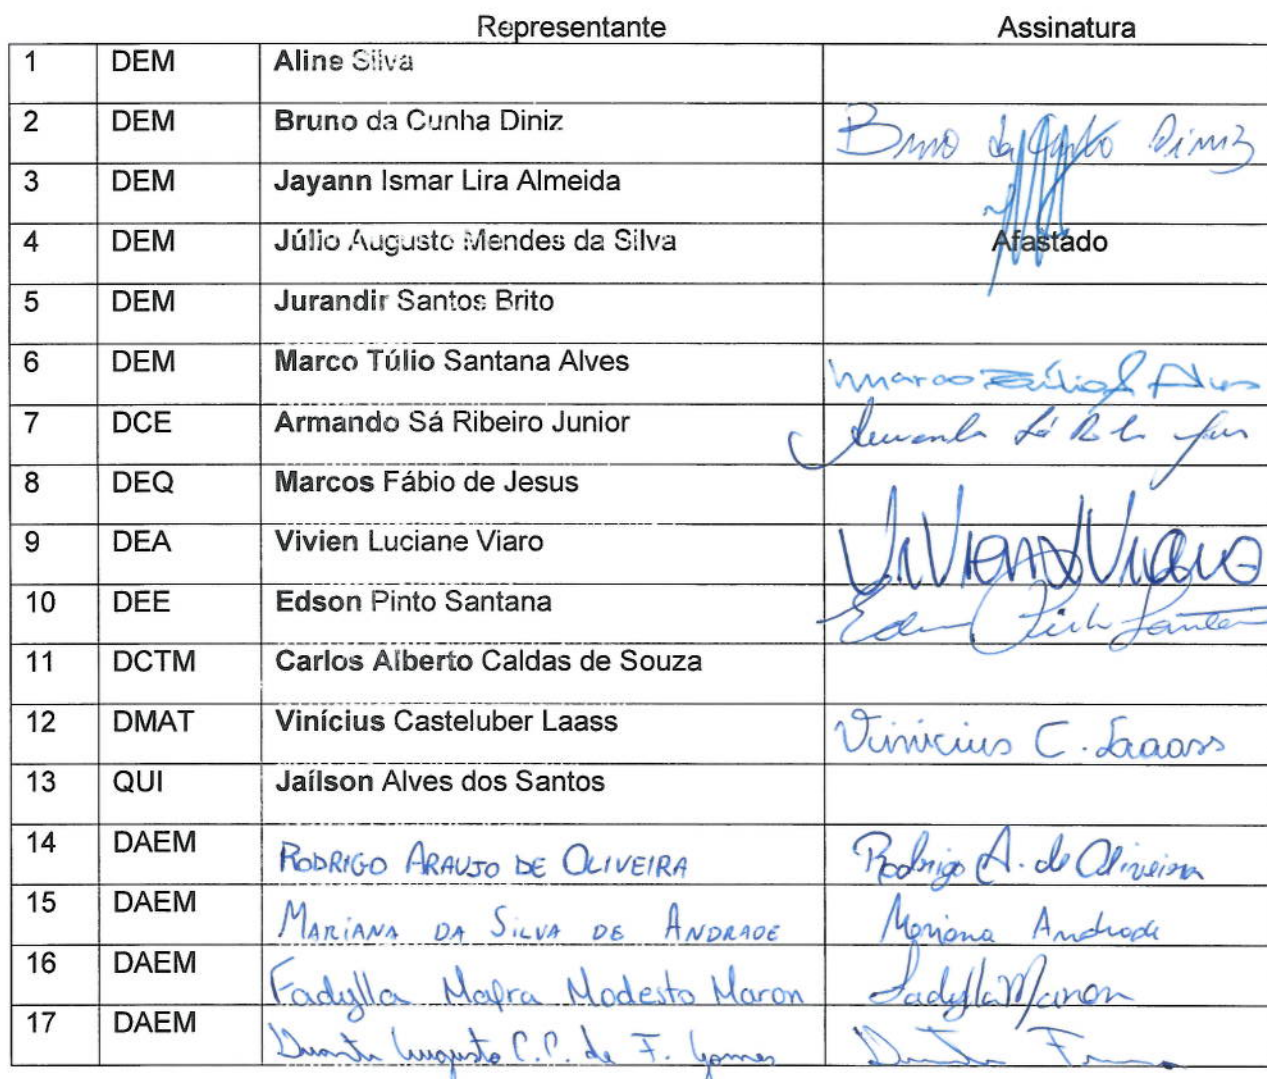 Representante Assinatura
1 DEM Aline Silva
2 DEM Bruno da Cunha Diniz Bruno da Cunha Diniz
3 DEM Jayann Ismar Lira Almeida
4 DEM Júlio Augusto Mendes da Silva Afastado
5 DEM Jurandir Santos Brito
6 DEM Marco Túlio Santana Alves Marco Túlio S Alves
7 DCE Armando Sá Ribeiro Junior Armando Sá
8 DEQ Marcos Fábio de Jesus
9 DEA Vivien Luciane Viaro Vivien Viaro
10 DEE Edson Pinto Santana Edson Pinto Santana
11 DCTM Carlos Alberto Caldas de Souza
12 DMAT Vinícius Casteluber Laass Vinicius C. Laass
13 QUI Jaílson Alves dos Santos
14 DAEM RODRIGO ARAUJO DE OLIVEIRA Rodrigo A. de Oliveira
15 DAEM MARIANA DA SILVA DE ANDRADE Mariana Andrade
16 DAEM Fadylla Mafra Modesto Maron Fadylla Maron
17 DAEM Augusto C.C. de F. Gomes